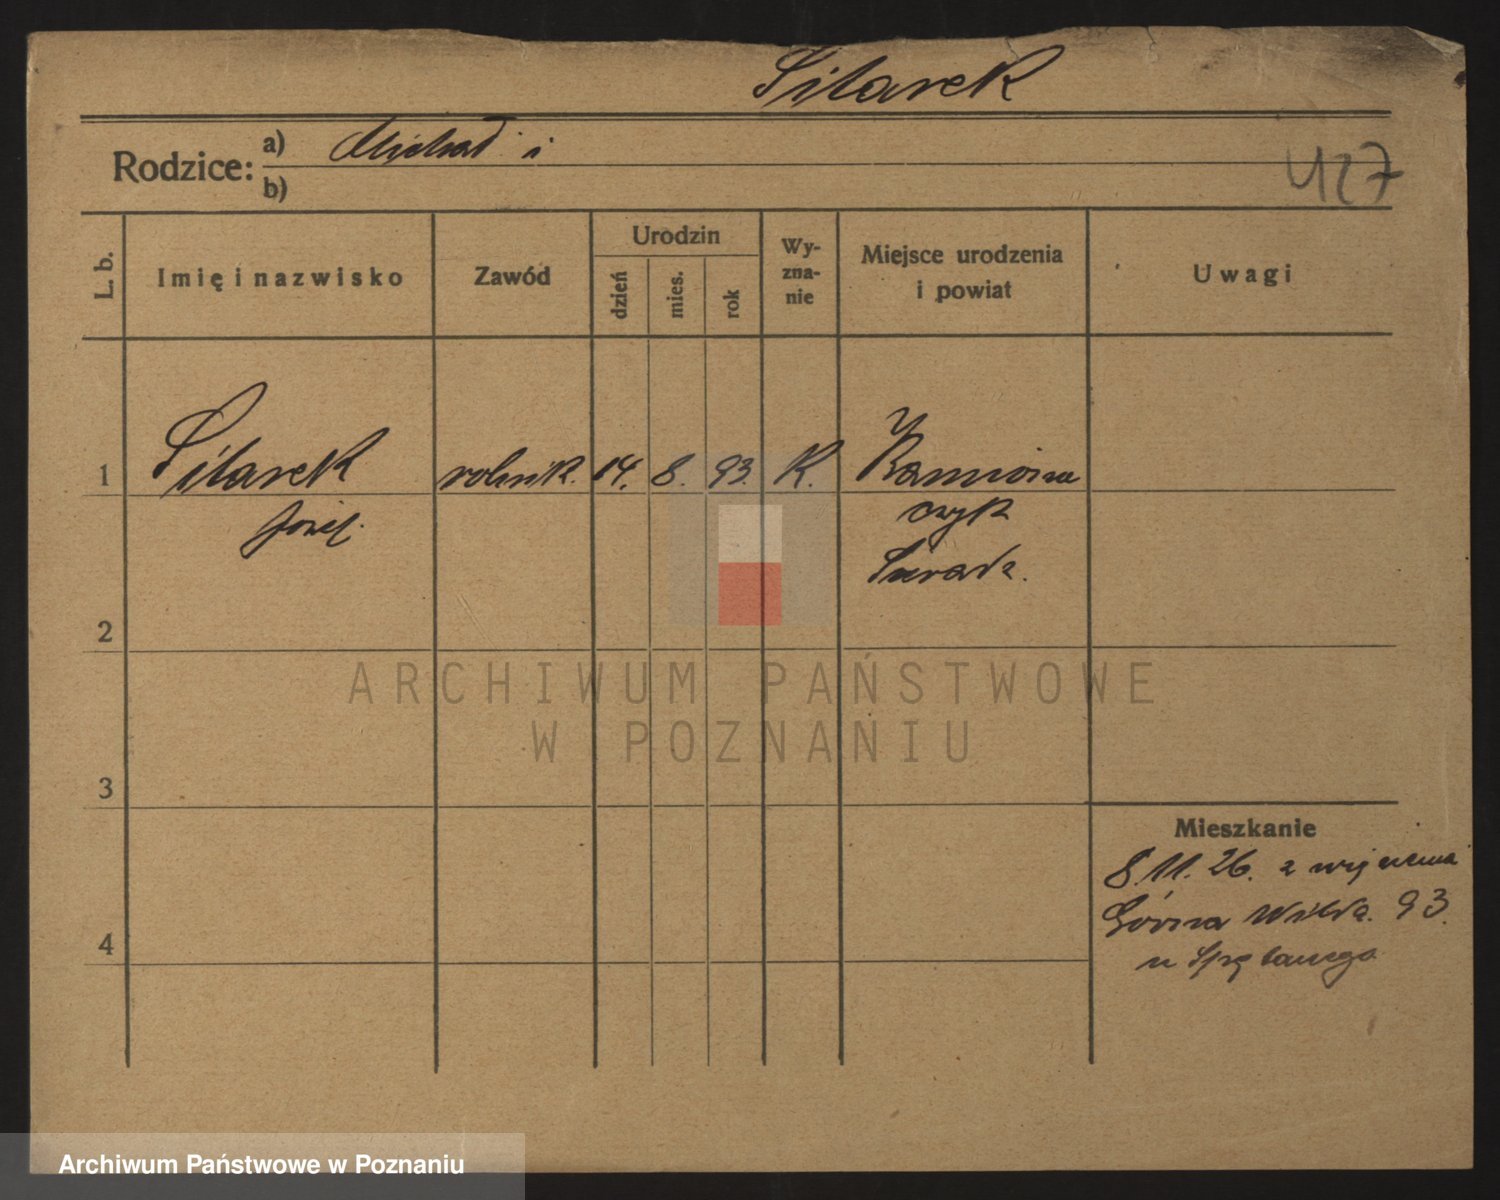 Sitarek
Rodzice: a) Michał i
b)
427
L. b.
Imię i nazwisko
Zawód
Urodzin
dzień
mies.
rok
Wy-
zna-
nie
Miejsce urodzenia
i powiat
Uwagi
1
Sitarek rolnik. 14. 8. 93. K.
Józef.
czyk
Sieradz.
2
ARCHIWUM PAŃSTWOWE
W POZNANIU
3
Mieszkanie
8.11.26. z
Górna Wilda. 93.
u
4
Archiwum Państwowe w Poznaniu